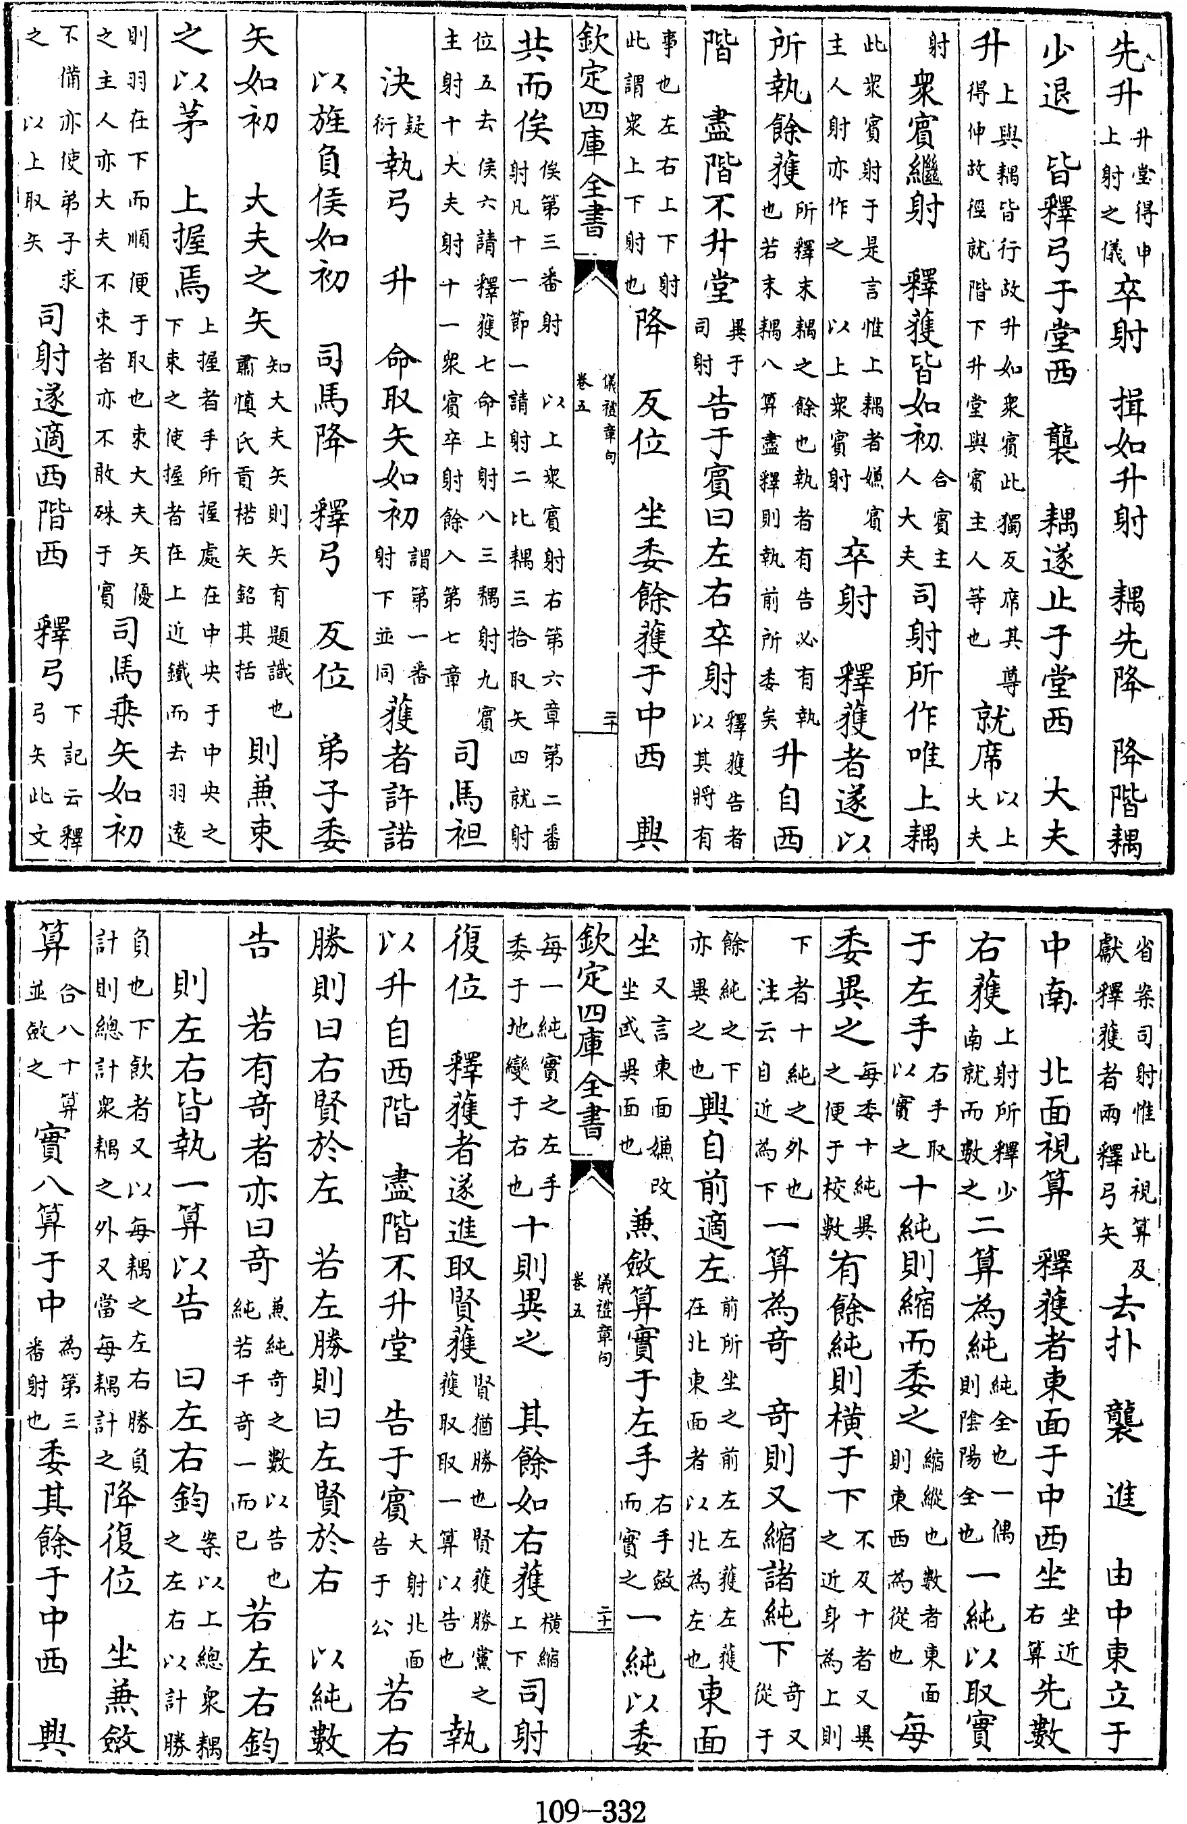 先升升堂得申上射之儀卒射 揖如升射 耦先降 降階耦
少退 皆釋弓于堂西 襲 耦遂止于堂西 大夫
升上與耦皆行故升如衆賓此獨反席其尊得伸故徑就階下升堂與賓主人等也就席以上大夫
射 衆賓繼射 釋獲皆如初合賓主人大夫司射所作唯上耦
此衆賓射于是言惟上耦者嫌賓主人射亦作之 以上衆賓射 卒射 釋獲者遂以
所執餘獲所釋末耦之餘也執者有告必有執也若末耦八算盡釋則執前所委矣升自西
階 盡階不升堂異于司射告于賓曰左右卒射釋獲告者以其將有
事也左右上下射此謂衆上下射也降 反位 坐委餘獲于中西 興
欽定四庫全書 儀禮章句 卷五 三十
共而俟俟第三番射 以上衆賓射右第六章第二番射凡十一節一請射二比耦三拾取矢四就射
位五去侯六請釋獲七命上射八三耦射九賓主射十大夫射十一衆賓卒射餘入第七章 司馬袒
決疑衍執弓 升 命取矢如初謂第一番射下並同獲者許諾
以旌負侯如初 司馬降 釋弓 反位 弟子委
矢如初 大夫之矢知大夫矢則矢有題識也肅慎氏貢楛矢銘其括 則兼束
之以茅 上握焉上握者手所握處在中央于中央之下束之使握者在上近鏃而去羽遠
則羽在下而順便于取也束大夫矢優之主人亦大夫不束者亦不敢殊于賓 司馬乘矢如初
不備亦使弟子求之 以上取矢 司射遂適西階西 釋弓下記云釋弓矢此文
省案司射惟此視算及獻釋獲者兩釋弓矢去扑 襲 進 由中東立于
中南 北面視算 釋獲者東面于中西坐坐近右算先數
右獲上射所釋少南就而數之二算為純純全也一偶則陰陽全也一純以取實
于左手右手取以實之十純則縮而委之縮縱也數者東面則東西為從也每
委異之每委十純異之便于校數有餘純則橫于下不及十者又異之近身為上則
下者十純之外也注云自近為下一算為奇 奇則又縮諸純下奇又從于
餘純之下亦異之也興自前適左前所坐之前左左獲左獲在北東面者以北為左也東面
坐又言東面嫌改坐或異面也 兼斂算實于左手右手斂而實之一純以委
欽定四庫全書 儀禮章句 卷五 三十一
每一純實之左手委于地變于右也十則異之 其餘如右獲橫縮上下司射
復位 釋獲者遂進取賢獲賢猶勝也賢獲勝黨之獲取取一算以告也 執
以升自西階 盡階不升堂 告于賓大射北面告于公 若右
勝則曰右賢於左 若左勝則曰左賢於右 以純數
告 若有奇者亦曰奇兼純奇之數以告也純若干奇一而已 若左右鈞
則左右皆執一算以告 曰左右鈞案以上總衆耦之左右以計勝
負也下飲者又以每耦之左右勝負計則總計衆耦之外又當每耦計之降復位 坐兼斂
算合八十算並斂之 實八算于中為第三番射也委其餘于中西 興
109-332